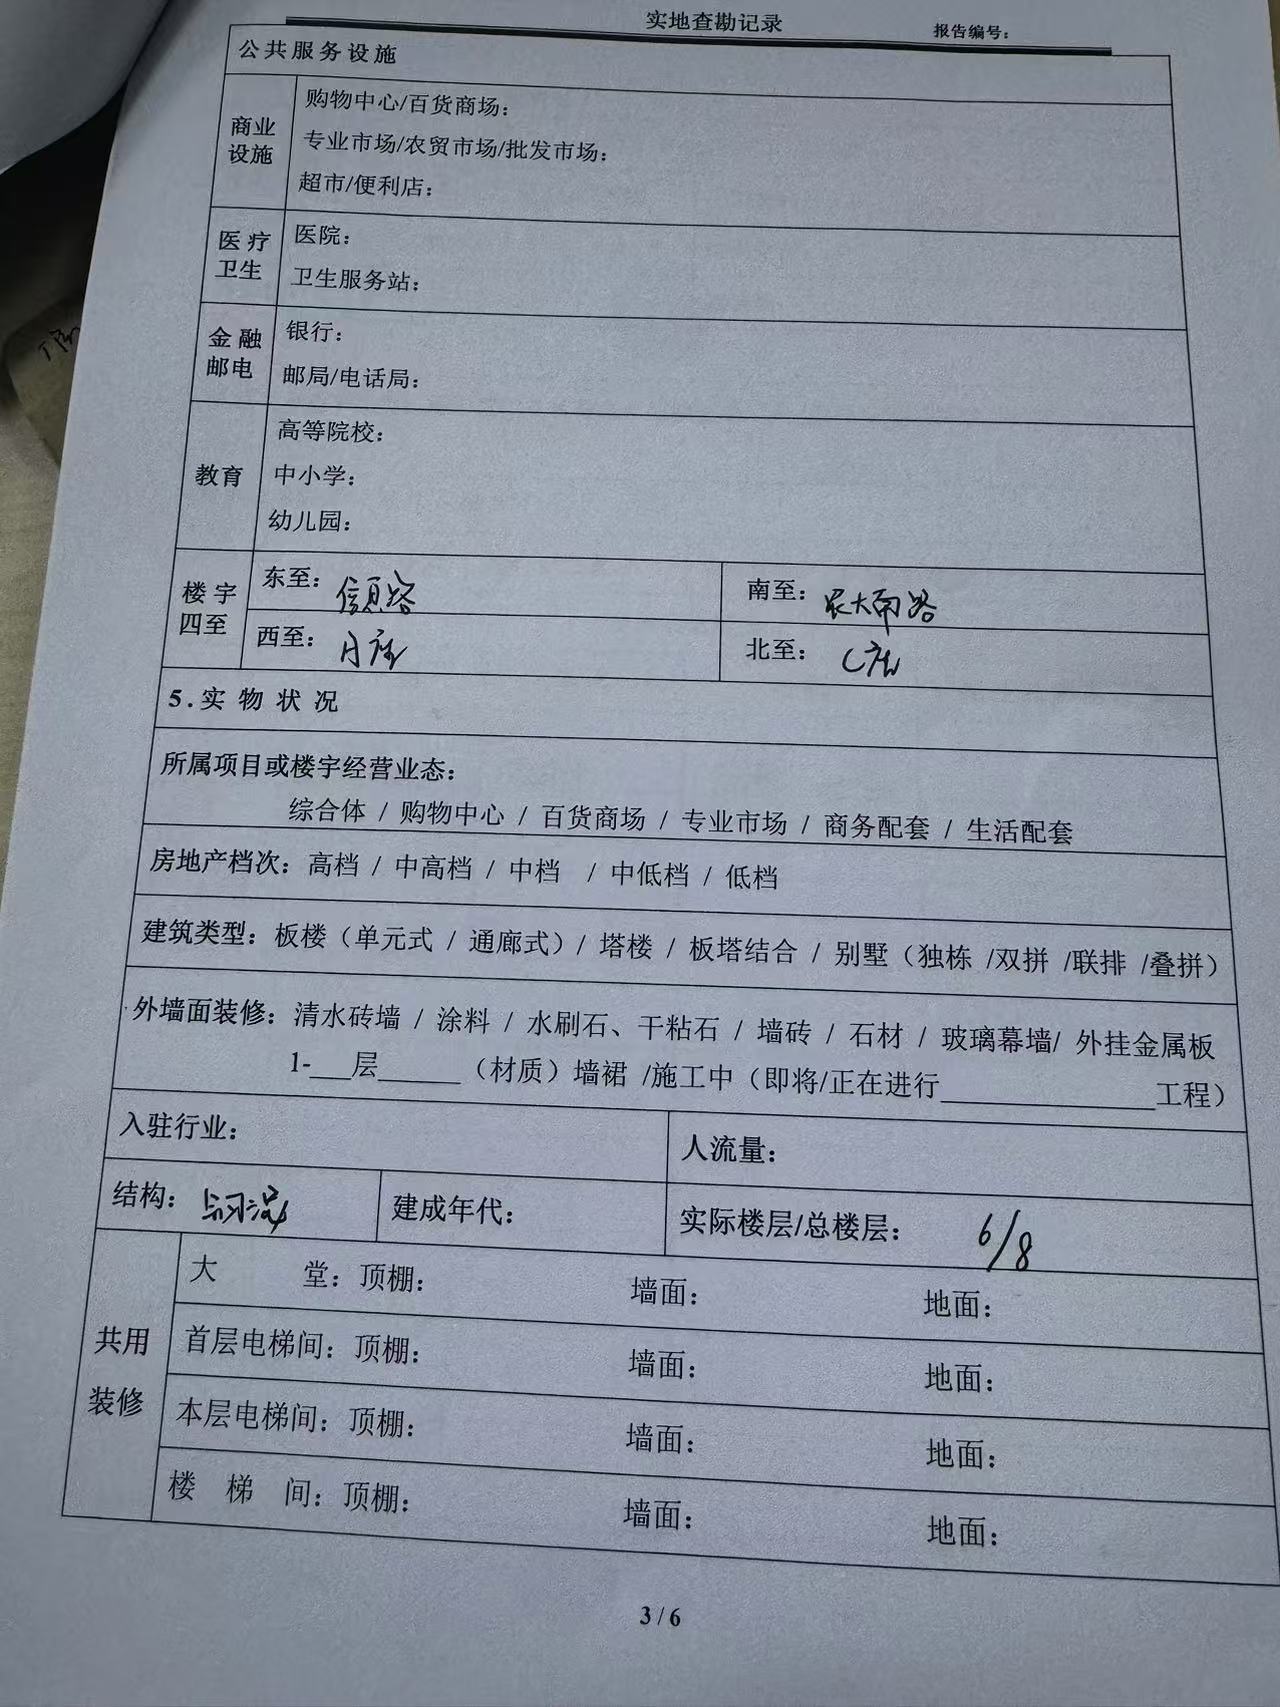 实地查勘记录
报告编号：
公共服务设施
商业设施
购物中心/百货商场：
专业市场/农贸市场/批发市场：
超市/便利店：
医疗卫生
医院：
卫生服务站：
金融邮电
银行：
邮局/电话局：
教育
高等院校：
中小学：
幼儿园：
楼宇四至
东至：信息路
南至：农大南路
西至：A座
北至：C座
5.实物状况
所属项目或楼宇经营业态：
综合体 / 购物中心 / 百货商场 / 专业市场 / 商务配套 / 生活配套
房地产档次：高档 / 中高档 / 中档 / 中低档 / 低档
建筑类型：板楼（单元式 / 通廊式）/ 塔楼 / 板塔结合 / 别墅（独栋 /双拼 /联排 /叠拼）
外墙面装修：清水砖墙 / 涂料 / 水刷石、干粘石 / 墙砖 / 石材 / 玻璃幕墙/ 外挂金属板
1-___层______（材质）墙裙 /施工中（即将/正在进行________________工程）
入驻行业：
人流量：
结构：钢混
建成年代：
实际楼层/总楼层： 6/8
共用装修
大 堂：顶棚： 墙面： 地面：
首层电梯间：顶棚： 墙面： 地面：
本层电梯间：顶棚： 墙面： 地面：
楼 梯 间：顶棚： 墙面： 地面：
3 / 6